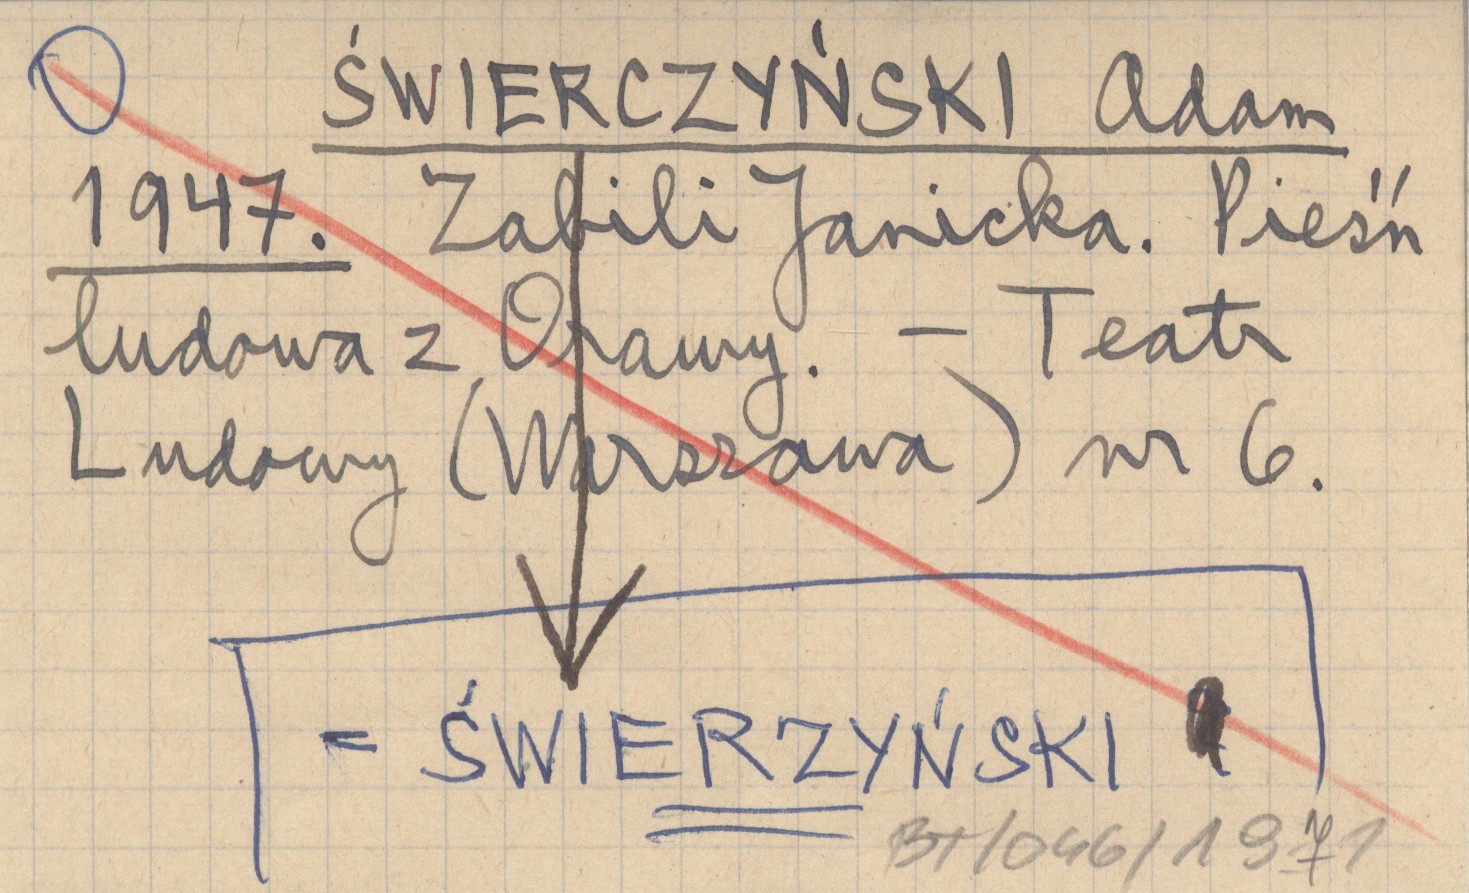 ŚWIERCZYŃSKI Adam
1947. Zabili Janicka. Pieśń
ludowa z Orawy. — Teatr
Ludowy (Warszawa) nr 6.
= ŚWIERZYŃSKI
BT/046/1971